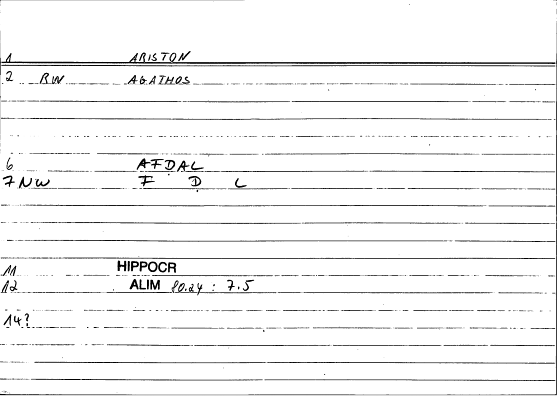 1 ARISTON
2 RW AGATHOS
6 AFḌAL
7 NW F Ḍ L
11 HIPPOCR
12 ALIM 80.24 : 7.5
14?